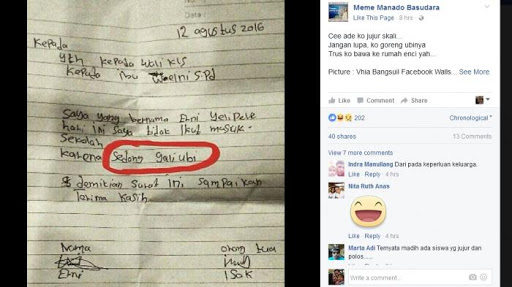 12 agustus 2016
Kepada
yth kepada wali kls
kepada ibu Woelni S.Pd
Saya yang bernama Etni Yeli Pele
hari ini saya tidak ikut masuk
sekolah
karena sedang gali ubi
demikian surat ini, sampaikan
terima kasih
Nama
orang tua
Etni
Isak
Meme Manado Basudara
Like This Page · 8 hrs ·
Cee ade ko jujur skali...
Jangan lupa, ko goreng ubinya
Trus ko bawa ke rumah enci yah...
Picture : Vhia Bangsuil Facebook Walls... See More
Like · Comment · Share
202
Chronological
40 shares
13 Comments
View 7 more comments
Indra Manullang Dari pada keperluan keluarga.
Like · Reply · 4 hrs
Nita Ruth Anas
Like · Reply · 4 hrs
Marta Adi Ternyata madih ada siswa yg jujur dan
polos......
Write a comment...